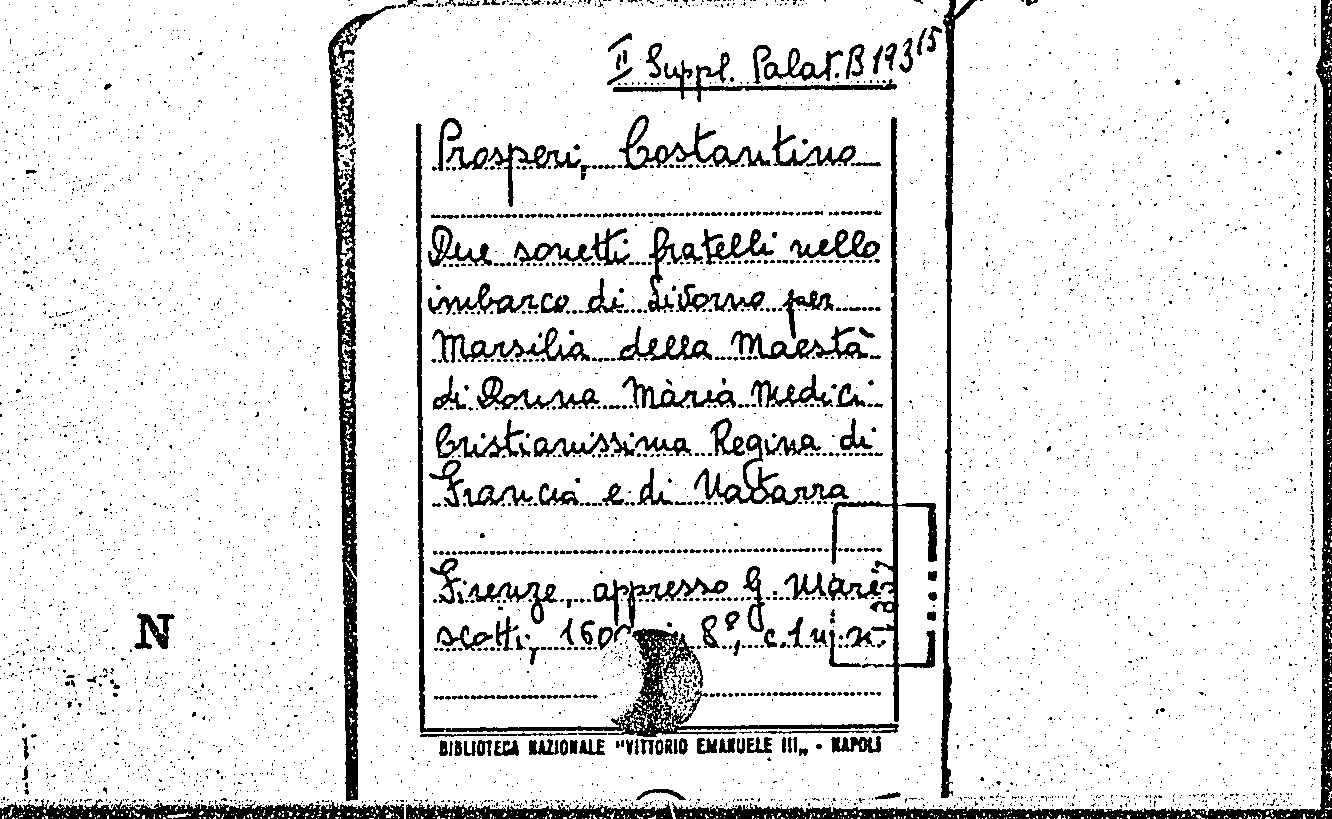 II Suppl. Palat. B 193 15
Prosperi, Costantino
Due sonetti fratelli nello
imbarco di Livorno per
Marsilia della Maestà
di Donna Maria Medici
Cristianissima Regina di
Francia e di Navarra
Firenze, appresso G. Mare-
scotti, 8°, c. 1 n.n.
N
BIBLIOTECA NAZIONALE "VITTORIO EMANUELE III„ - NAPOLI